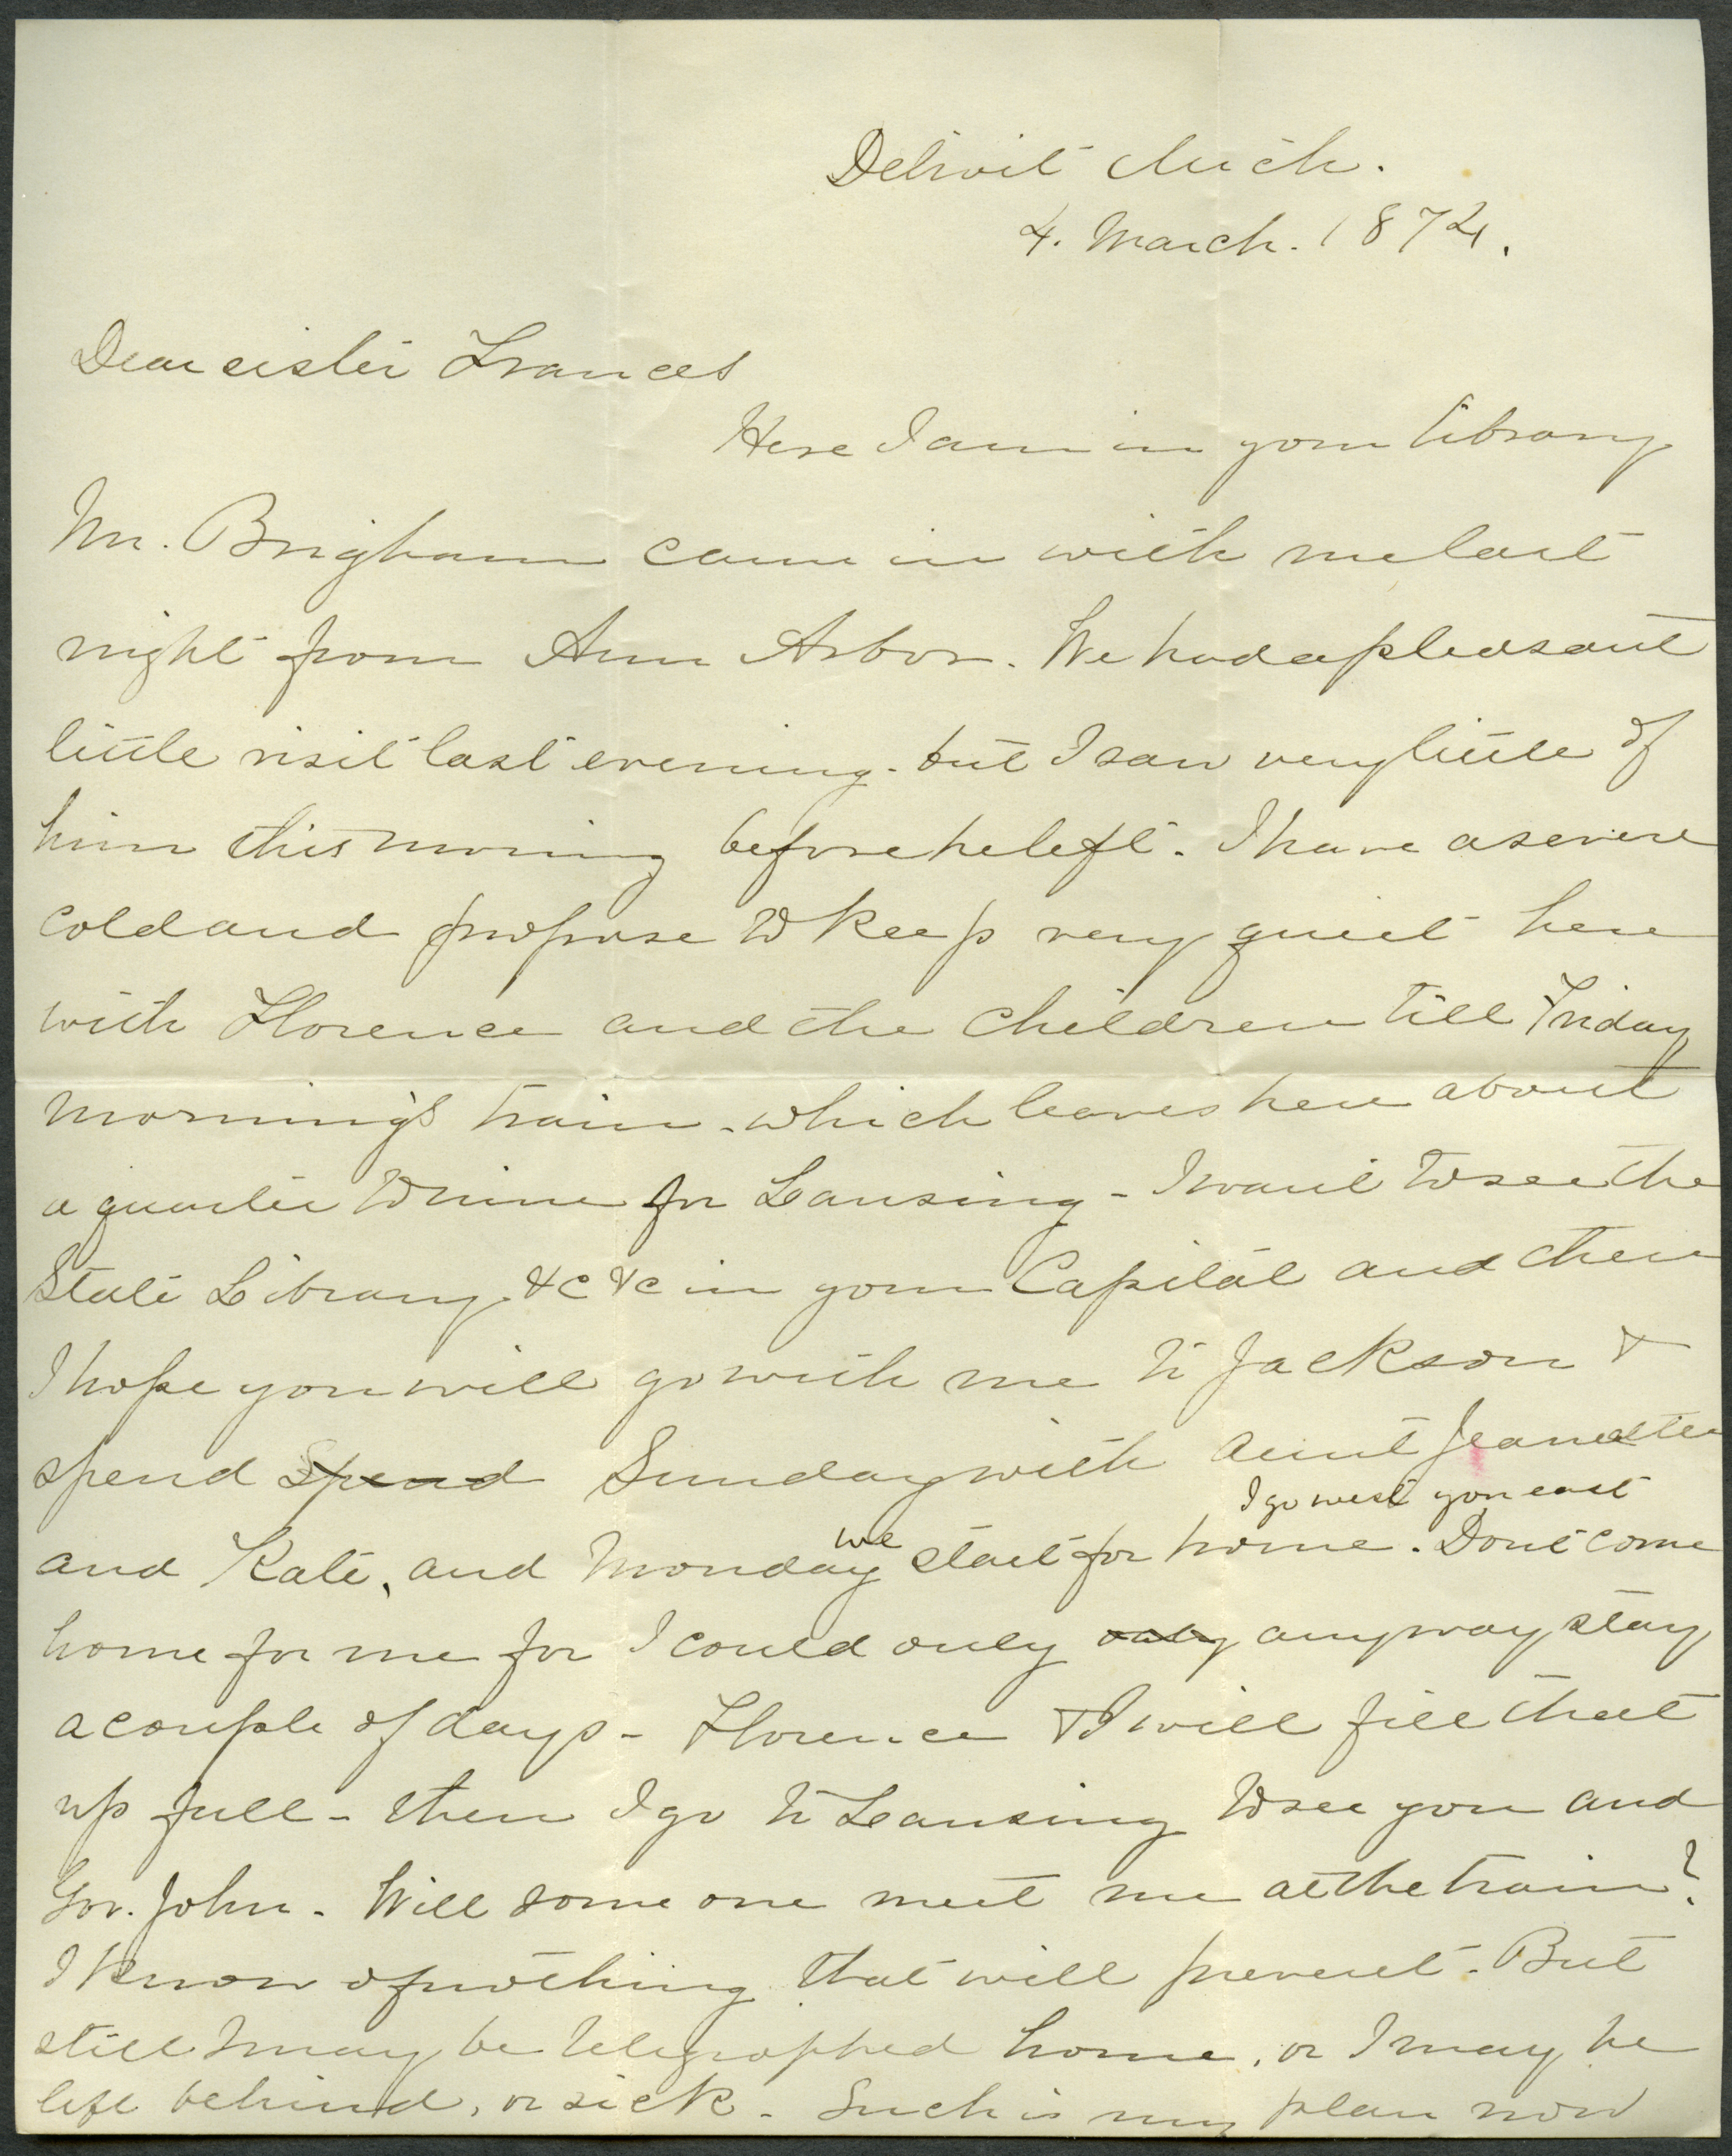 Detroit Mich.
4. March. 1874.
Dear sister Frances
Here I am in your library
Mr. Brigham came in with me last
night from Ann Arbor. We had a pleasant
little visit last evening. but I saw very little of
him this morning before he left. I have a severe
cold and propose to keep very quiet here
with Florence and the children till Friday
morning's train. which leaves here about
a quarter to nine for Lansing - I want to see the
State Library &c &c in your Capital and then
I hope you will go with me to Jackson &
spend spend Sunday with Aunt Jeanette
and Kate, and Monday we start for home. I go west you east Dont come
home for me for I could only only anyway stay
a couple of days - Florence & I will fill that
up full - then I go to Lansing to see you and
Gov. John. Will some one meet me at the train?
I know of nothing that will prevent. But
still I may be telegraphed home, or I may be
left behind, or sick. Such is my plan now